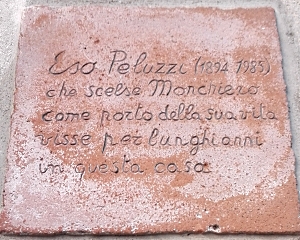 Eso Peluzzi (1894 1985)
che scelse Monchiero
come porto della sua vita
visse per lunghi anni
in questa casa